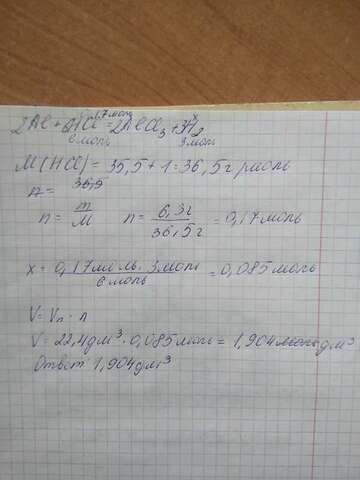 0,17моль x
2Al + 6HCl = 2AlCl₃ + 3H₂
6моль 3моль
M(HCl) = 35,5 + 1 = 36,5 г/моль
n = 36,5
n = m/M n = 6,3г/36,5г = 0,17моль
x = 0,17моль · 3моль/6моль = 0,085моль
V = Vn · n
V = 22,4дм³ · 0,085моль = 1,904 дм³
Ответ: 1,904дм³